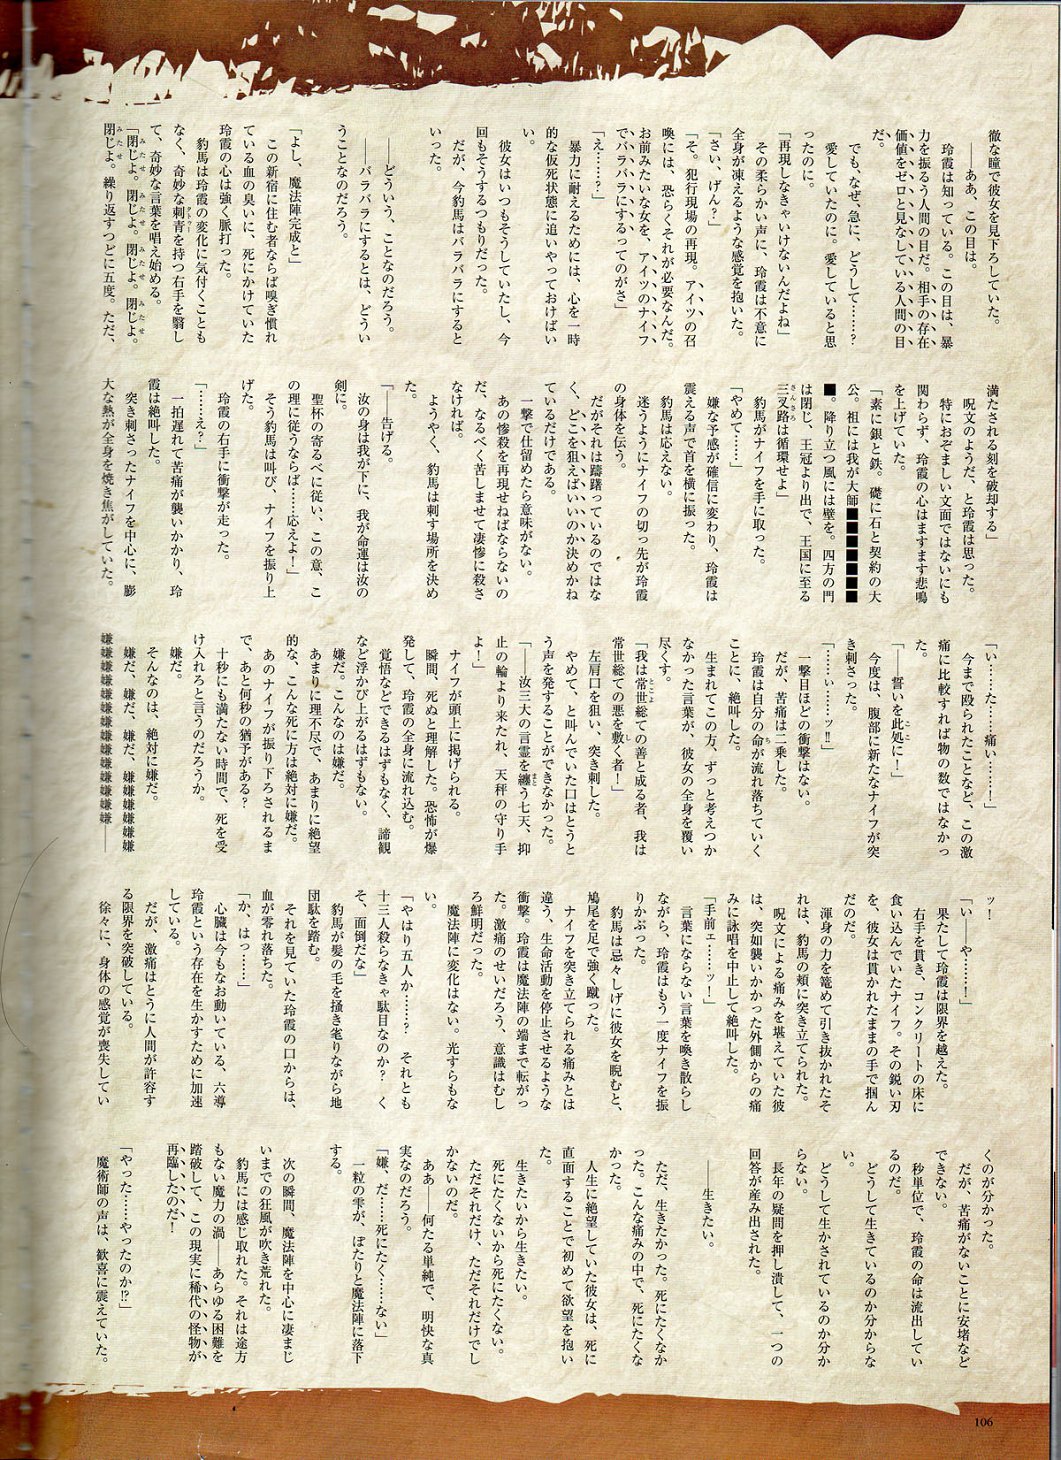 徹な瞳で彼女を見下ろしていた。
――ああ、この目は。
玲霞は知っている。この目は、暴
力を振るう人間の目だ。相手の存在
価値をゼロと見なしている人間の目
だ。
でも、なぜ、急に、どうして………？
愛していたのに。愛していると思
ったのに。
「再現しなきゃいけないんだよね」
その柔らかい声に、玲霞は不意に
全身が凍えるような感覚を抱いた。
「さい、げん？」
「そ。犯行現場の再現。アイツの召
喚には、恐らくそれが必要なんだ。
お前みたいな女を、アイツのナイフ
でバラバラにするってのがさ」
「え……？」
暴力に耐えるためには、心を一時
的な仮死状態に追いやっておけばい
い。
彼女はいつもそうしていたし、今
回もそうするつもりだった。
だが、今豹馬はバラバラにすると
いった。
――どういう、ことなのだろう。
――バラバラにするとは、どうい
うことなのだろう。
「よし、魔法陣完成と」
この新宿に住む者ならば嗅ぎ慣れ
ている血の臭いに、死にかけていた
玲霞の心は強く脈打った。
豹馬は玲霞の変化に気付くことも
なく、奇妙な刺青を持つ右手を翳し
て、奇妙な言葉を唱え始める。
「閉じよ。閉じよ。閉じよ。閉じよ。
閉じよ。繰り返すつどに五度。ただ、
満たされる刻を破却する」
呪文のようだ、と玲霞は思った。
特におぞましい文面ではないにも
関わらず、玲霞の心はますます悲鳴
を上げていた。
「素に銀と鉄。礎に石と契約の大
公。祖には我が大師■■■■■■■
■。降り立つ風には壁を。四方の門
は閉じ、王冠より出で、王国に至る
三叉路は循環せよ」
豹馬がナイフを手に取った。
「やめて……」
嫌な予感が確信に変わり、玲霞は
震える声で首を横に振った。
豹馬は応えない。
迷うようにナイフの切っ先が玲霞
の身体を伝う。
だがそれは躊躇っているのではな
く、どこを狙えばいいのか決めかね
ているだけである。
一撃で仕留めたら意味がない。
あの惨殺を再現せねばならないの
だ、なるべく苦しませて凄惨に殺さ
なければ。
ようやく、豹馬は刺す場所を決め
た。
「――告げる。
汝の身は我が下に、我が命運は汝の
剣に。
聖杯の寄るべに従い、この意、こ
の理に従うならば……応えよ！」
そう豹馬は叫び、ナイフを振り上
げた。
玲霞の右手に衝撃が走った。
「………え？」
一拍遅れて苦痛が襲いかかり、玲
霞は絶叫した。
突き刺さったナイフを中心に、膨
大な熱が全身を焼き焦がしていた。
「い……た……痛い………！」
今まで殴られたことなど、この激
痛に比較すれば物の数ではなかっ
た。
「――誓いを此処に！」
今度は、腹部に新たなナイフが突
き刺さった。
「……ぃ……ッ‼」
一撃目ほどの衝撃はない。
だが、苦痛は二乗した。
玲霞は自分の命が流れ落ちていく
ことに、絶叫した。
生まれてこの方、ずっと考えつか
なかった言葉が、彼女の全身を覆い
尽くす。
「我は常世総ての善と成る者、我は
常世総ての悪を敷く者！」
左肩口を狙い、突き刺した。
やめて、と叫んでいた口はとうと
う声を発することができなかった。
「――汝三大の言霊を纏う七天、抑
止の輪より来たれ、天秤の守り手
よ！」
ナイフが頭上に掲げられる。
瞬間、死ぬと理解した。恐怖が爆
発して、玲霞の全身に流れ込む。
覚悟などできるはずもなく、諦観
など浮かび上がるはずもない。
嫌だ。こんなのは嫌だ。
あまりに理不尽で、あまりに絶望
的な、こんな死に方は絶対に嫌だ。
あのナイフが振り下ろされるま
で、あと何秒の猶予がある？
十秒にも満たない時間で、死を受
け入れろと言うのだろうか。
嫌だ。
そんなのは、絶対に嫌だ。
嫌だ、嫌だ、嫌だ、嫌嫌嫌嫌嫌
嫌嫌嫌嫌嫌嫌嫌嫌嫌嫌嫌嫌嫌嫌――
ッ！
「い――や………！」
果たして玲霞は限界を越えた。
右手を貫き、コンクリートの床に
食い込んでいたナイフ。その鋭い刃
を、彼女は貫かれたままの手で掴ん
だのだ。
渾身の力を篭めて引き抜かれたそ
れは、豹馬の頬に突き立てられた。
呪文による痛みを堪えていた彼
は、突如襲いかかった外側からの痛
みに詠唱を中止して絶叫した。
「手前ェ……ッ！」
言葉にならない言葉を喚き散らし
ながら、玲霞はもう一度ナイフを振
りかぶった。
豹馬は忌々しげに彼女を睨むと、
鳩尾を足で強く蹴った。
ナイフを突き立てられる痛みとは
違う、生命活動を停止させるような
衝撃。玲霞は魔法陣の端まで転がっ
た。激痛のせいだろう、意識はむし
ろ鮮明だった。
魔法陣に変化はない。光すらもな
い。
「やはり五人か……？　それとも
十三人殺らなきゃ駄目なのか？　く
そ、面倒だな」
豹馬が髪の毛を掻き毟りながら地
団駄を踏む。
それを見ていた玲霞の口からは、
血が零れ落ちた。
「か、はっ……」
心臓は今もなお動いている、六導
玲霞という存在を生かすために加速
している。
だが、激痛はとうに人間が許容す
る限界を突破している。
徐々に、身体の感覚が喪失してい
くのが分かった。
だが、苦痛がないことに安堵など
できない。
秒単位で、玲霞の命は流出してい
るのだ。
どうして生きているのか分からな
い。
どうして生かされているのか分か
らない。
長年の疑問を押し潰して、一つの
回答が産み出された。
――生きたい。
ただ、生きたかった。死にたくなか
った。こんな痛みの中で、死にたくな
かった。
人生に絶望していた彼女は、死に
直面することで初めて欲望を抱い
た。
生きたいから生きたい。
死にたくないから死にたくない。
ただそれだけ、ただそれだけでし
かないのだ。
ああ――何たる単純で、明快な真
実なのだろう。
「嫌、だ……死にたく……ない」
一粒の雫が、ぽたりと魔法陣に落下
する。
次の瞬間、魔法陣を中心に凄まじ
いまでの狂風が吹き荒れた。
豹馬には感じ取れた。それは途方
もない魔力の渦――あらゆる困難を
踏破して、この現実に稀代の怪物が
再臨したのだ！
「やった……やったのか⁉」
魔術師の声は、歓喜に震えていた。
106